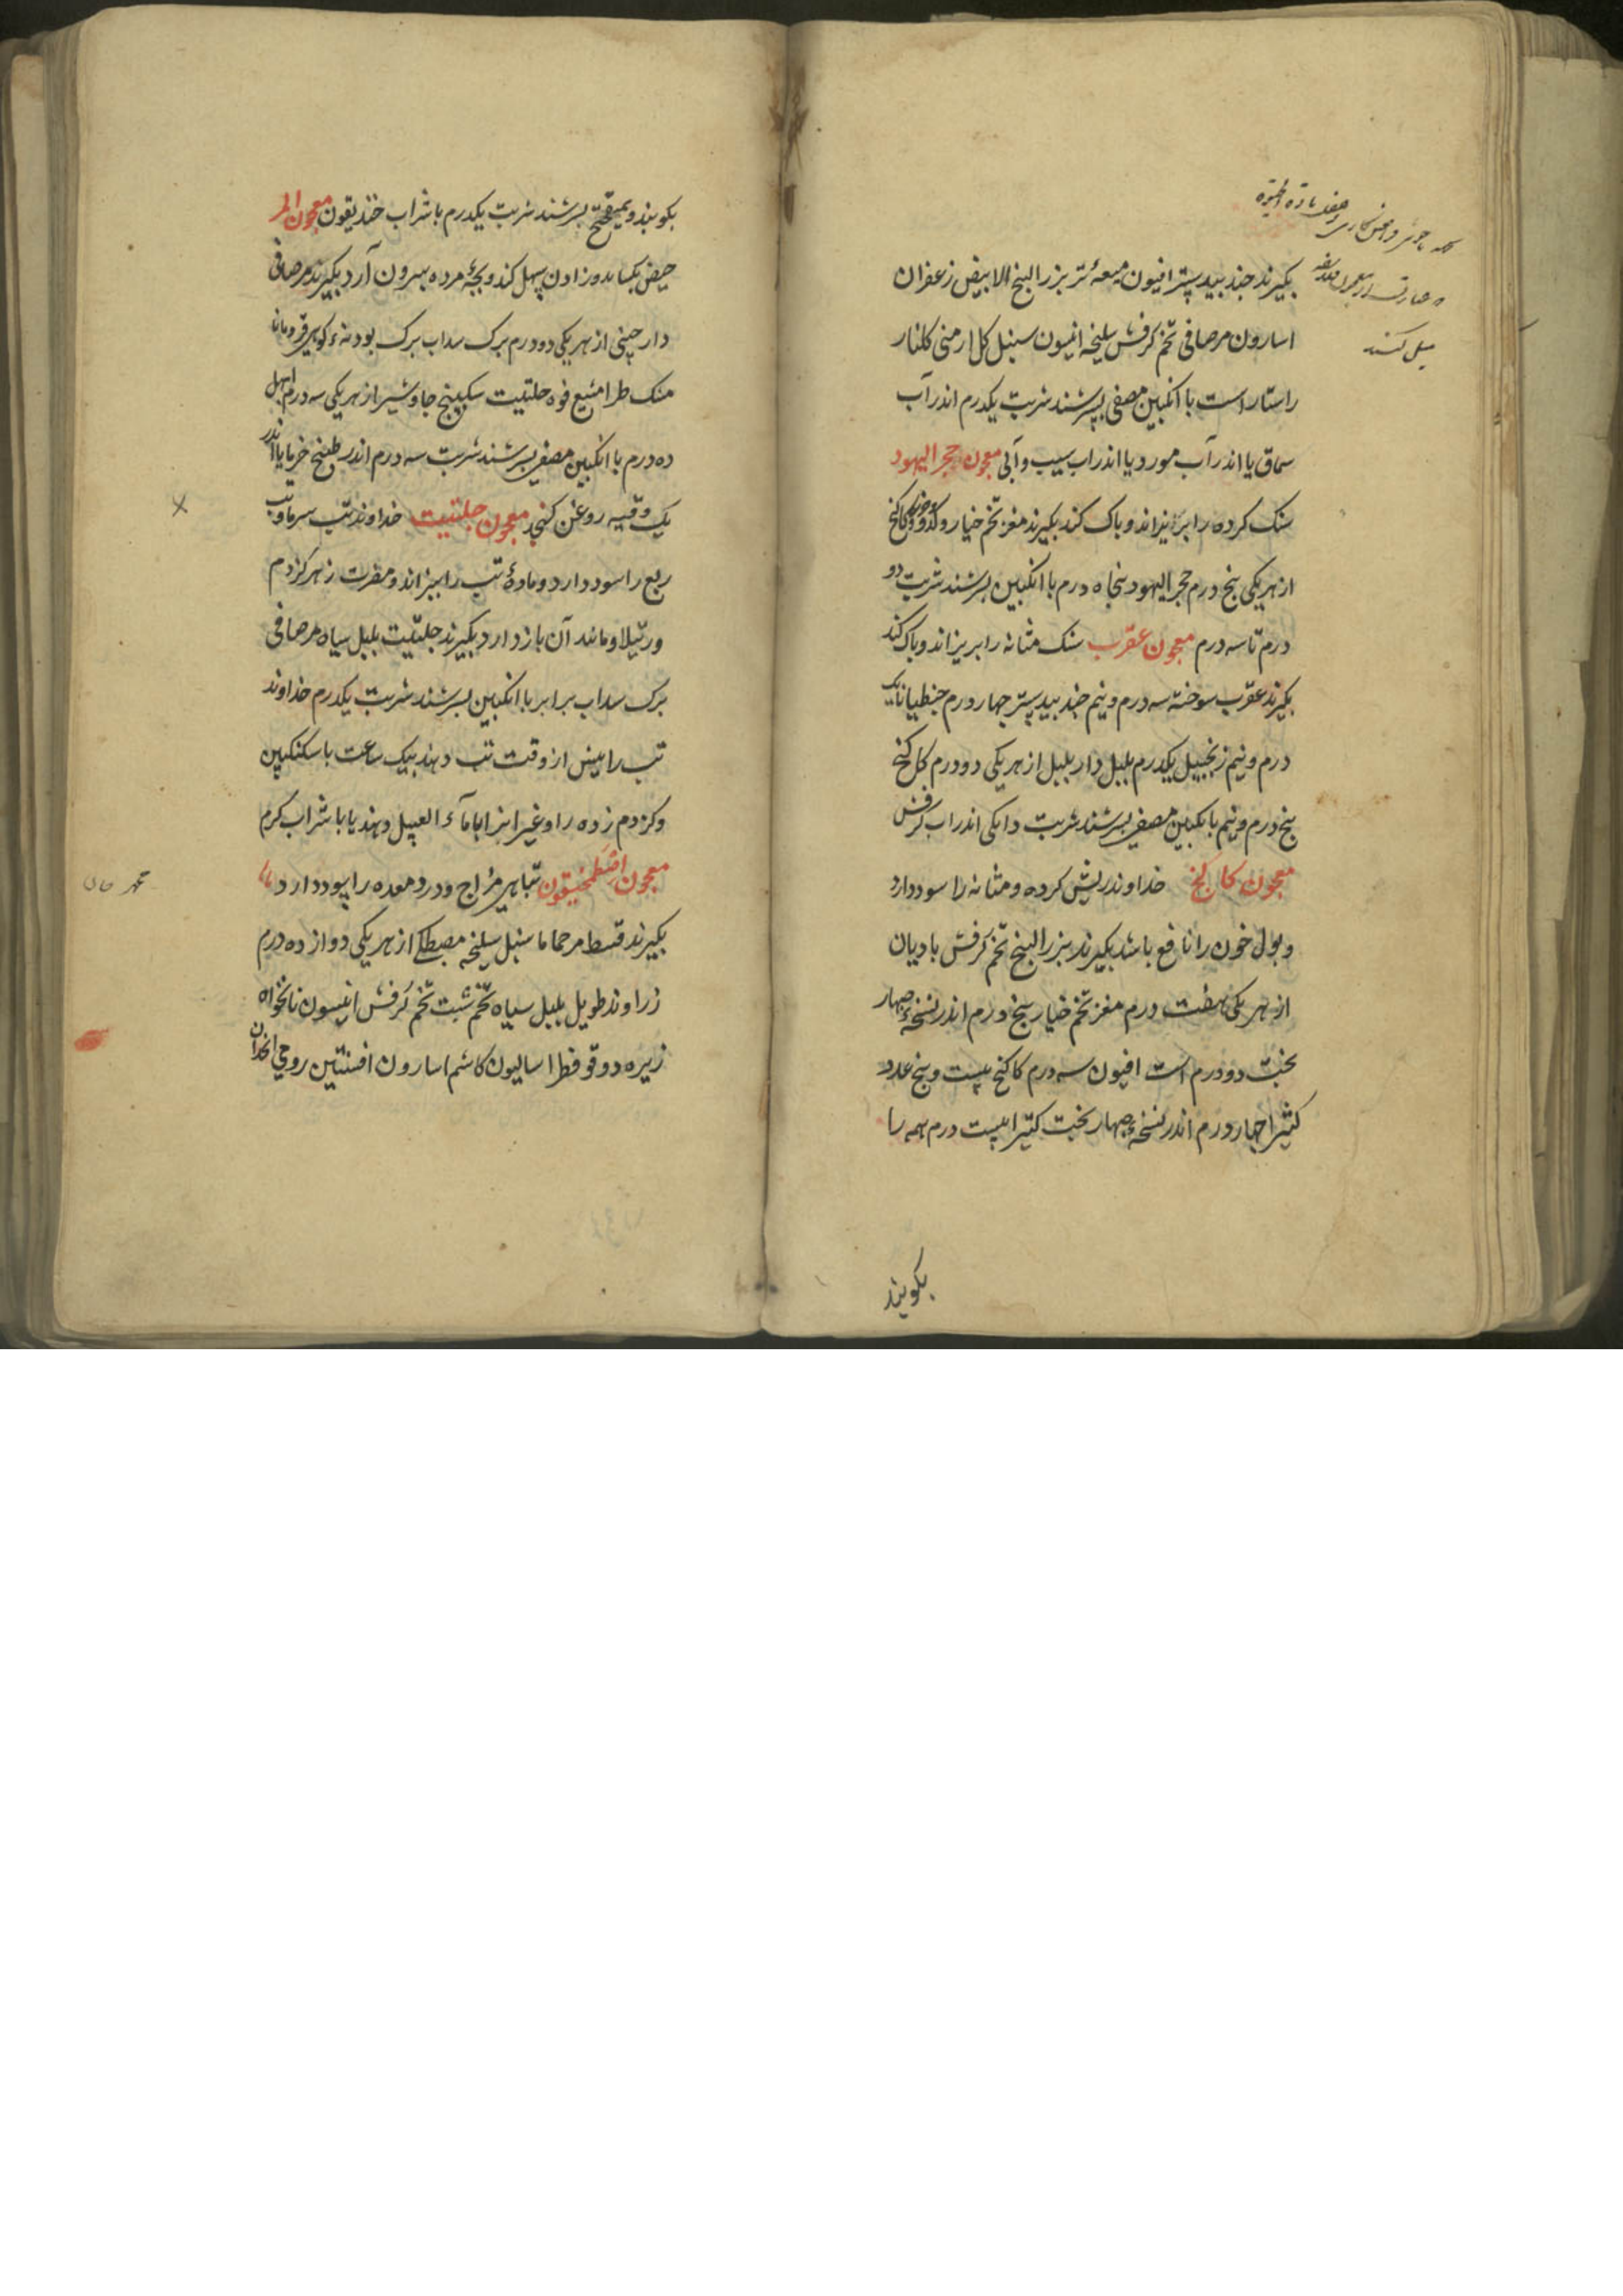 بکیرند جندبیدستر افیون میعهٔ تر بزر البنج الابیض زعفران
اسارون مرصافی تخم کرفس سلیخه انیسون سنبل کل ارمنی کلنار
راستا راست با انکبین مصفی بسرشند شربت یکدرم اندر آب
سماق یا اندر آب مورد یا اندر اب سیب و آبی معجون حجر الیهود
سنک کرده را بریزاند و پاک کند بکیرند مغز تخم خیار و کدو و کاکنج
از هر یکی پنج درم حجر الیهود پنجاه درم با انکبین بسرشند شربت دو
درم تا سه درم معجون عقرب سنک مثانه را بریزاند و پاک کند
بکیرند عقرب سوخته سه درم و نیم جندبیدستر چهار درم جنطیانا یک
درم و نیم زنجبیل یکدرم پلپل دار پلپل از هر یکی دو درم کاکنج
پنج درم و نیم بانکبین مصفی بسرشند شربت دانکی اندر اب کرفس
معجون کاکنج خداوند ریش کرده و مثانه را سود دارد
و بول خون را نافع باشد بکیرند بزر البنج تخم کرفس بادیان
از هر یکی هفت درم مغز تخم خیار پنج درم اندر نسخهٔ چهار
بخت دو درم است افیون سه درم کاکنج بیست و پنج عدد
کثیرا چهار درم اندر نسخهٔ چهار بخت کتیرا بیست درم همه را
بکویند
بکوبند و بمیفختج بسرشند شربت یکدرم با شراب خندیقون معجون المر
حیض بکشاید و زادن سهل کند و بچهٔ مرده بیرون آرد بکیرند مرصافی
دارچینی از هر یکی دو درم برک سداب برک بودنهٔ کوهی قردمانا
مشک طرامشیع فوه حلتیت سکبینج جاوشیر از هر یکی سه درم ابهل
ده درم با انکبین مصفی بسرشند شربت سه درم اندر طبیخ خرما یا اندر
یک وقیه روغن کنجد معجون حلتیت خداوند تب سرما و تب
ربع را سود دارد و مادهٔ تب را بپزاند و مضرت زهر کزدم
و رتیلا و مانند آن باز دارد بکیرند حلتیت پلپل سیاه مرصافی
برک سداب برابر با انکبین بسرشند شربت یکدرم خداوند
تب را پیش از وقت تب دهند بیک ساعت با سکنکبین
و کزدم زده را و غیر انرا با مآء العسل دهند یا با شراب کرم
معجون اصطمخیقون تباهی مزاج و درد معده را سود دارد
بکیرند قسط مر حماما سنبل سلیخه مصطکی از هر یکی دوازده درم
زراوند طویل پلپل سیاه تخم شبت تخم کرفس انیسون نانخواه
زیره دوقو فطراسالیون کاشم اسارون افسنتین رومی انجدان